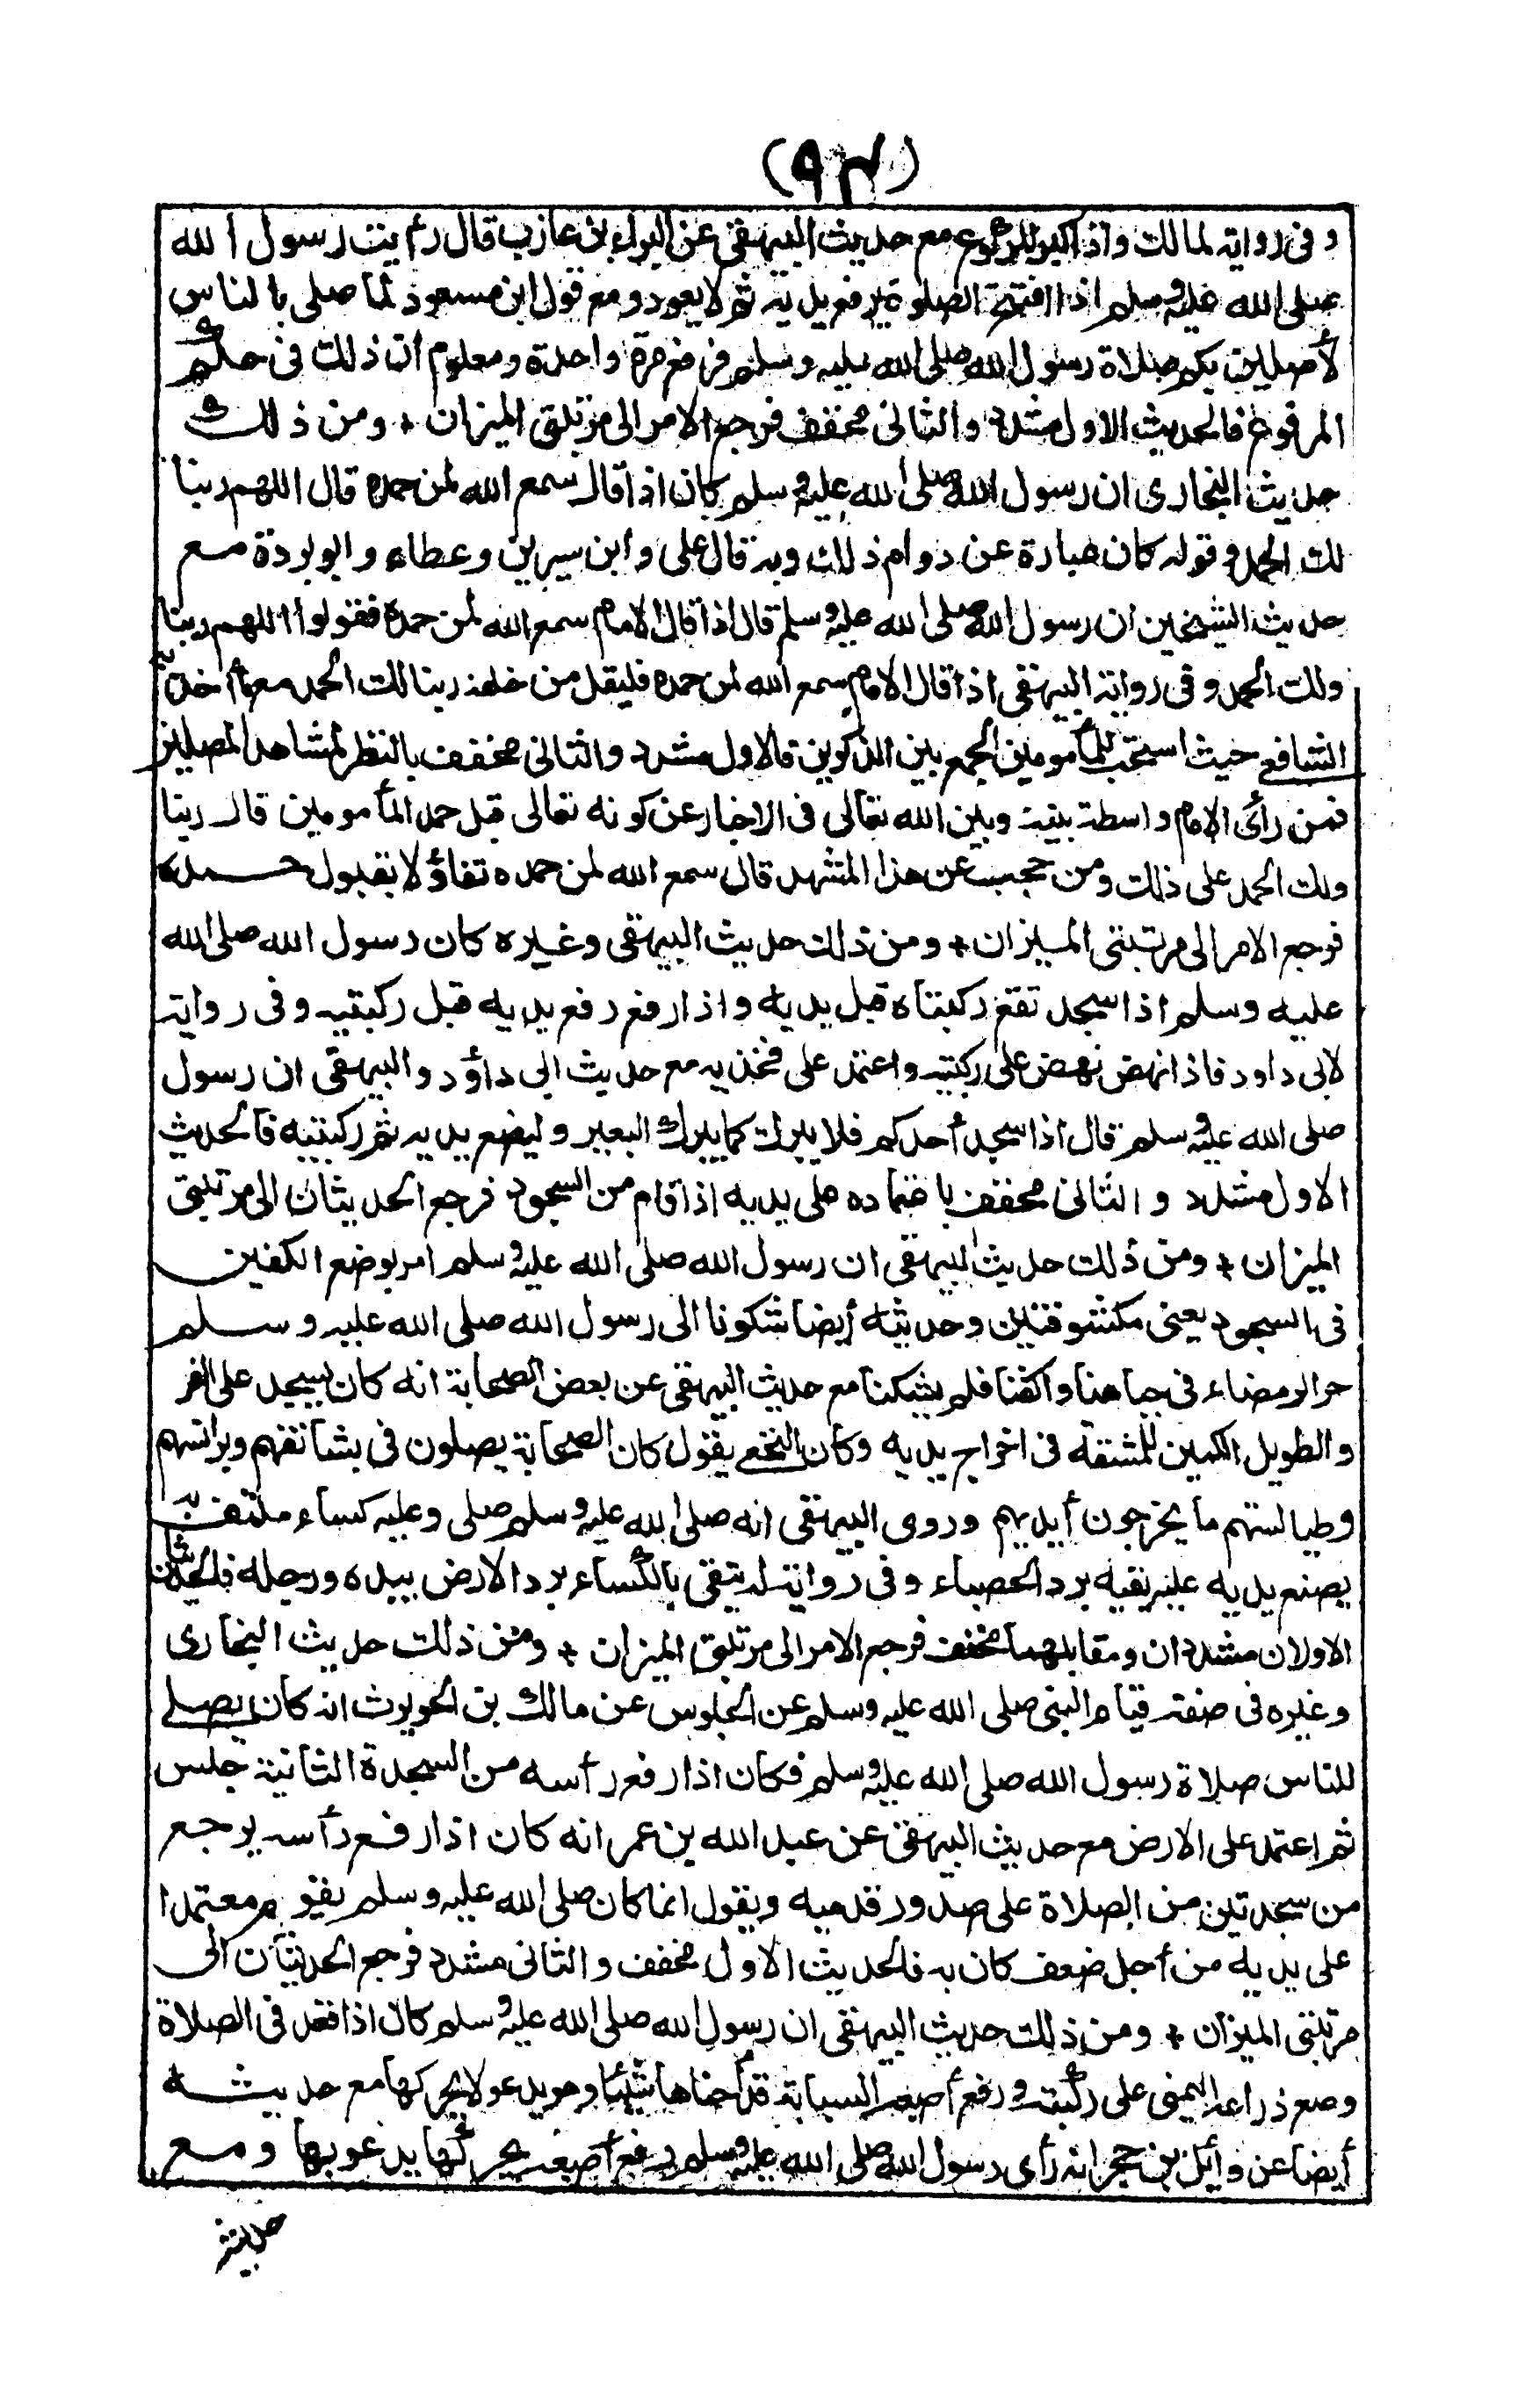 (٩٤)
وفى رواية لمالك واذا كبر للركوع مع حديث البيهقى عن البراء بن عازب قال رأيت رسول الله
صلى الله عليه وسلم اذا افتتح الصلوة يرفع يديه ثم لا يعود ومع قول ابن مسعود لما صلى بالناس
لأصلين بكم صلاة رسول الله صلى الله عليه وسلم فرفع مرة واحدة ومعلوم ان ذلك فى حكم
المرفوع فالحديث الاول مشدد والثانى مخفف فرجع الامر الى مرتبتى الميزان + ومن ذلك
حديث البخارى ان رسول الله صلى الله عليه وسلم كان اذا قال سمع الله لمن حمده قال اللهم ربنا
لك الحمد وقوله كان عبارة عن دوام ذلك وبه قال على وابن سيرين وعطاء وابو بردة مع
حديث الشيخين ان رسول الله صلى الله عليه وسلم قال اذا قال الامام سمع الله لمن حمده فقولوا اللهم ربنا
ولك الحمد وفى رواية البيهقى اذا قال الامام سمع الله لمن حمده فليقل من خلفه ربنا لك الحمد مع ما أخذ به
الشافعى حيث استحب للمأمومين الجمع بين الذكرين فالاول مشدد والثانى مخفف بالنظر لمشاهد المصلين
فمن رأى الامام واسطة بينه وبين الله تعالى فى الاخبار عن كونه تعالى قبل حمد المأمومين قال ربنا
ولك الحمد على ذلك ومن حجب عن هذا المشهد قال سمع الله لمن حمده تفاؤلا بقبول حمده
فرجع الامر الى مرتبتى الميزان + ومن ذلك حديث البيهقى وغيره كان رسول الله صلى الله
عليه وسلم اذا سجد تقع ركبتاه قبل يديه واذا رفع رفع يديه قبل ركبتيه وفى رواية
لابى داود فاذا نهض نهض على ركبتيه واعتمد على فخذيه مع حديث ابى داؤد والبيهقى ان رسول
صلى الله عليه وسلم قال اذا سجد أحدكم فلا يبرك كما يبرك البعير وليضع يديه ثم ركبتيه فالحديث
الاول مشدد والثانى مخفف باعتماده على يديه اذا قام من السجود فرجع الحديثان الى مرتبتى
الميزان + ومن ذلك حديث البيهقى ان رسول الله صلى الله عليه وسلم امر بوضع الكفين
فى السجود يعنى مكشوفتين وحديثه أيضا شكونا الى رسول الله صلى الله عليه وسلم
حر الرمضاء فى جباهنا واكفنا فلم يشكنا مع حديث البيهقى عن بعض الصحابة انه كان يسجد على الفر
والطويل الكمين للمشقة فى اخراج يديه وكان النخعى يقول كان الصحابة يصلون فى بشاتقهم وبرانسهم
وطيالستهم ما يخرجون أيديهم وروى البيهقى انه صلى الله عليه وسلم صلى وعليه كساء ملتف به
يضع يديه عليه يقيه برد الحصباء وفى رواية له يتقى بالكساء برد الارض بيده ورجله فالحديثان
الاولان مشددان ومقابلهما مخفف فرجع الامر الى مرتبتى الميزان + ومن ذلك حديث البخارى
وغيره فى صفة قيام النبى صلى الله عليه وسلم عن الجلوس عن مالك بن الحويرث انه كان يصلى
للناس صلاة رسول الله صلى الله عليه وسلم فكان اذا رفع رأسه من السجدة الثانية جلس
ثم اعتمد على الارض مع حديث البيهقى عن عبد الله بن عمر انه كان اذا رفع رأسه يرجع
من سجدتين من الصلاة على صدور قدميه ويقول انما كان صلى الله عليه وسلم يقوم معتمدا
على يديه من أجل ضعف كان به فالحديث الاول مخفف والثانى مشدد فرجع الحديثان الى
مرتبتى الميزان + ومن ذلك حديث البيهقى ان رسول الله صلى الله عليه وسلم كان اذا قعد فى الصلاة
وضع ذراعه اليمنى على ركبته ورفع أصبعه السبابة قد أحناها شيئا وهو يدعو لا يحركها مع حديثه
أيضا عن وائل بن حجر انه رأى رسول الله صلى الله عليه وسلم رفع أصبعه يحركها يدعو بها ومع
حديث